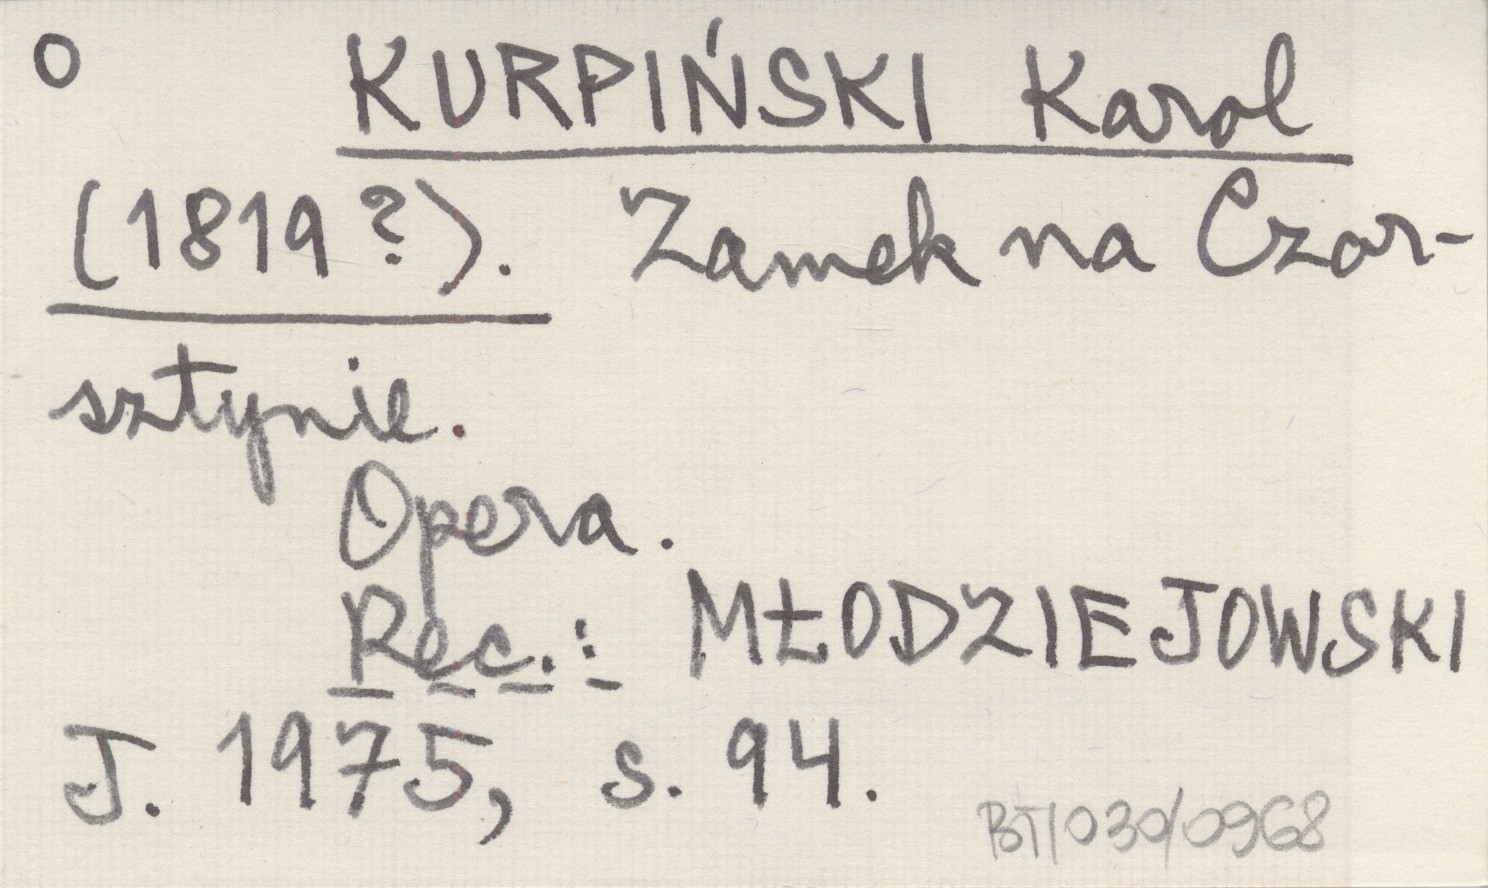 O KURPIŃSKI Karol
(1819?). Zamek na Czor-
sztynie.
Opera.
Rec.: MŁODZIEJOWSKI
J. 1975, s. 94.
BT/030/0968